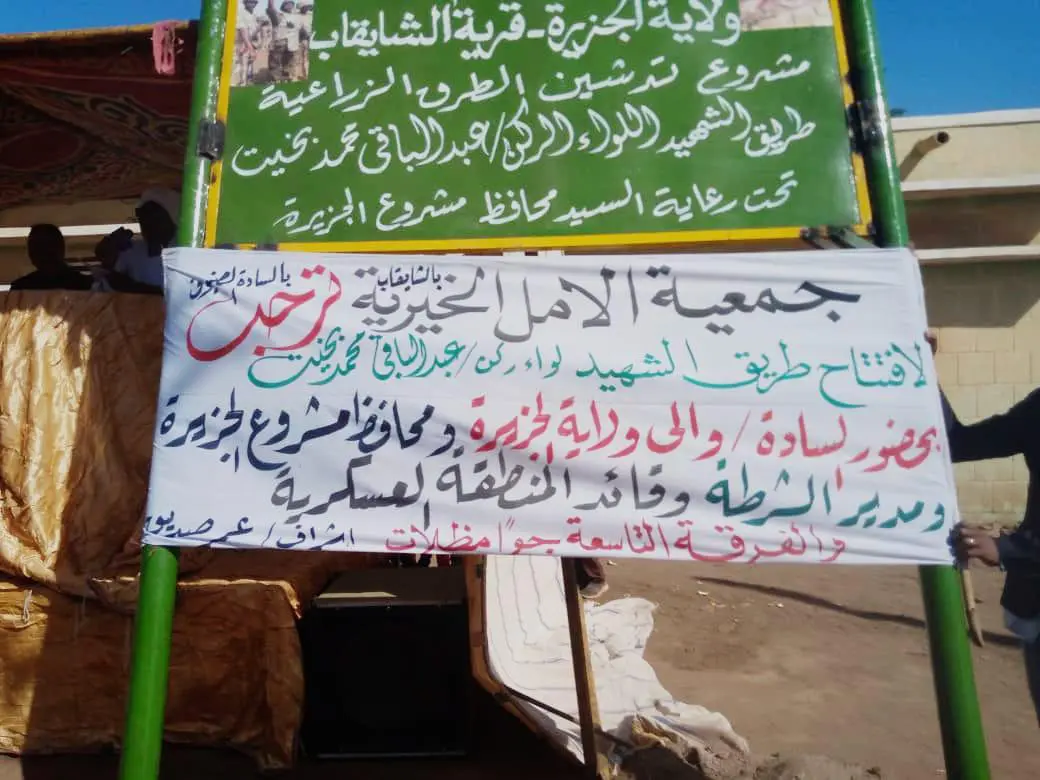 ولاية الجزيرة - قرية الشايقاب
مشروع تدشين الطرق الزراعية
طريق الشهيد اللواء الركن/ عبدالباقي محمد بخيت
تحت رعاية السيد محافظ مشروع الجزيرة
جمعية الامل الخيرية بالشايقاب ترحب بالسادة الضيوف
لافتتاح طريق الشهيد لواء ركن/ عبدالباقي محمد بخيت
بحضور السادة/ والي ولاية الجزيرة ومحافظ مشروع الجزيرة
ومدير الشرطة وقائد المنطقة العسكرية
والفرقة التاسعة جوًا مظلات اشراف/ عمر صديق